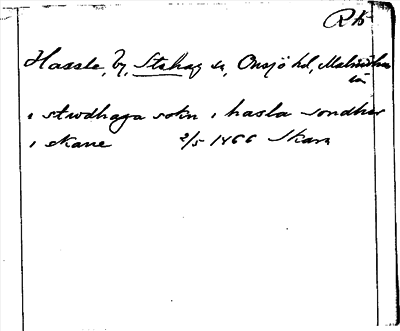 RA
Hassle, by, Stehag sn, Onsjö hd, Malmöhus
län
i stwdhaga sokn i hasla sondher
i skane 2/5 1466 Skara